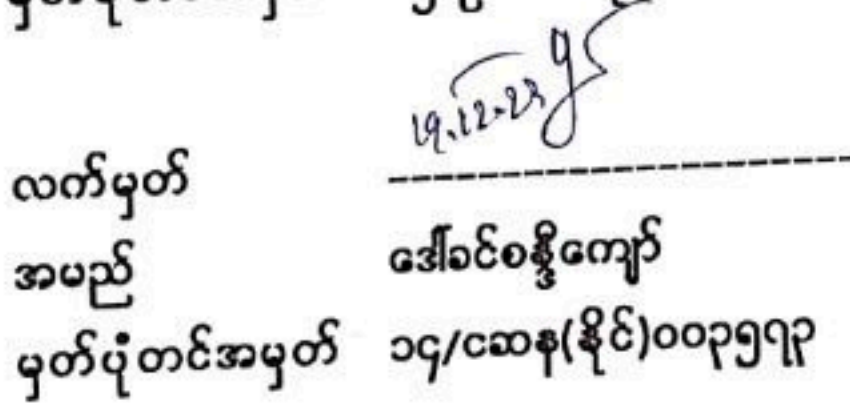 19.12.23
လက်မှတ်
အမည် ဒေါ်ခင်စန္ဒီကျော်
မှတ်ပုံတင်အမှတ် ၁၄/ငဆန(နိုင်)၀၀၃၅၇၃